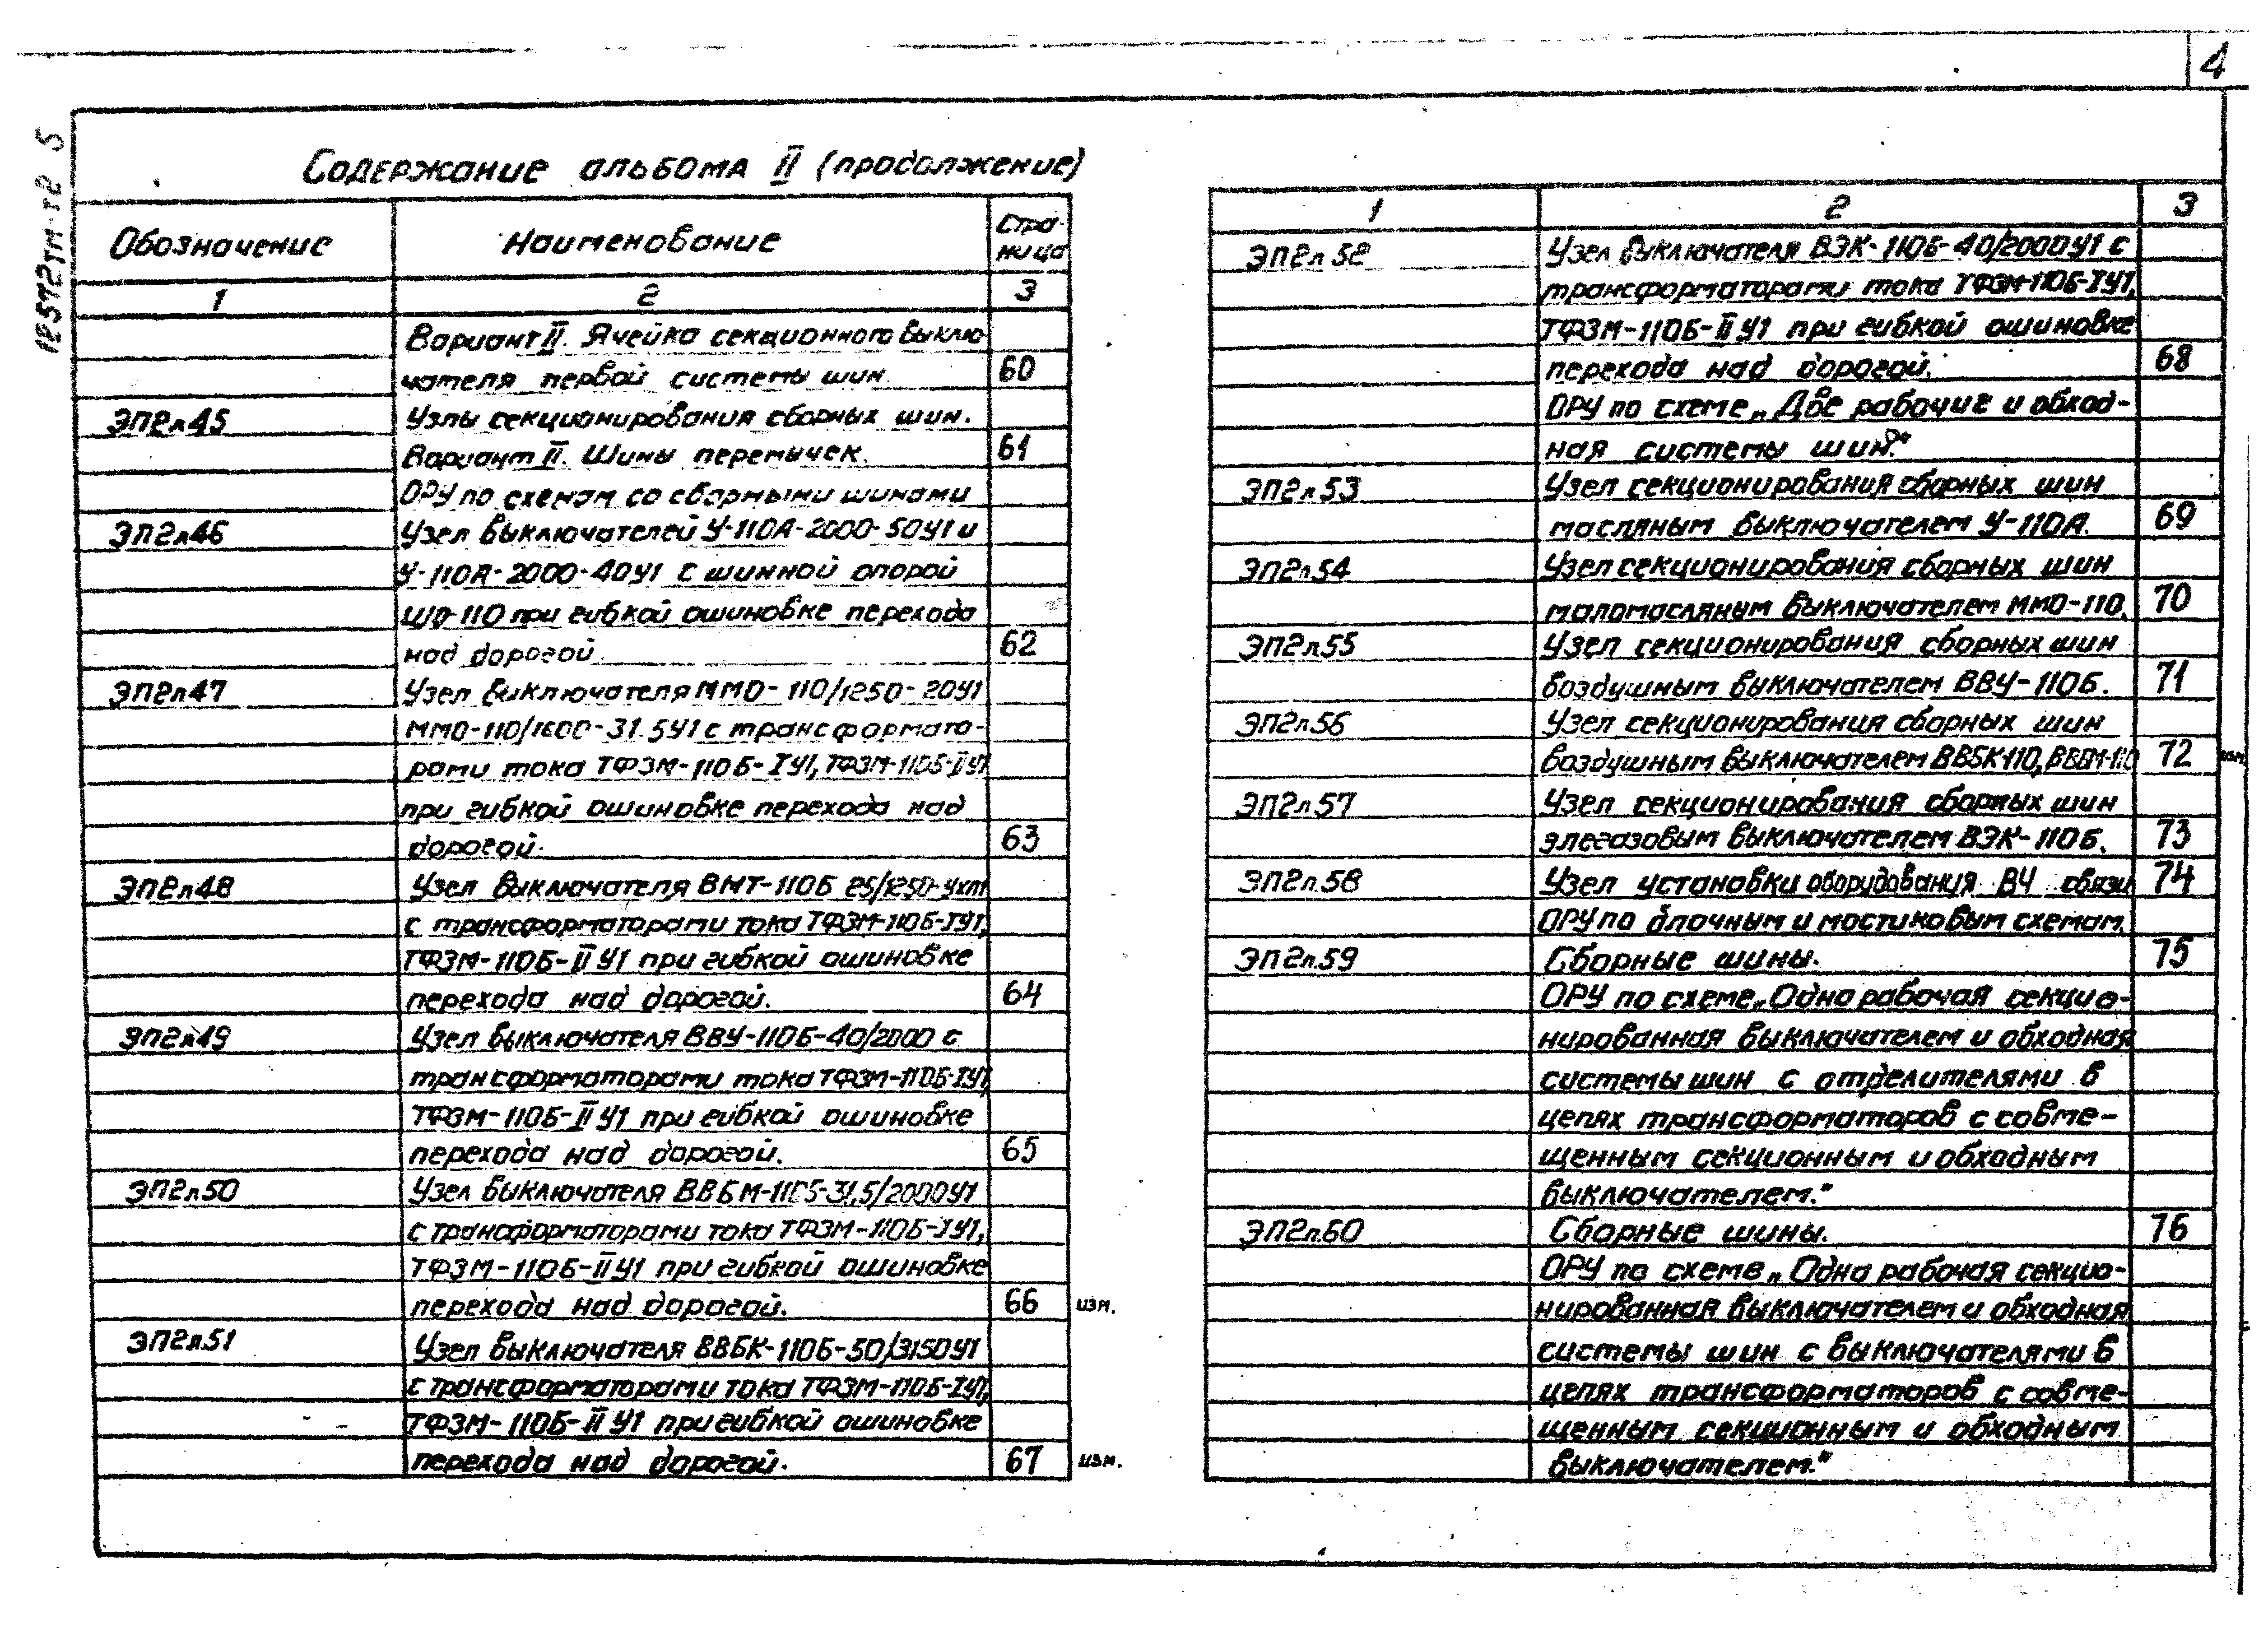 4
12572тм-т2 5
Содержание альбома II (продолжение)
Обозначение Наименование Стра-
ница
1 2 3
Вариант II. Ячейка секционного выклю-
чателя первой системы шин 60
ЭП2л45 Узлы секционирования сборных шин.
Вариант II. Шины перемычек. 61
ОРУ по схемам со сборными шинами
ЭП2л46 Узел выключателей У-110А-2000-50У1 и
У-110А-2000-40У1 с шинной опорой
ШО-110 при гибкой ошиновке перехода
над дорогой. 62
ЭП2л47 Узел выключателя ММО-110/1250-20У1
ММО-110/1600-31.5У1 с трансформато-
рами тока ТФЗМ-110Б-IУ1, ТФЗМ-110Б-IIУ1
при гибкой ошиновке перехода над
дорогой. 63
ЭП2л48 Узел выключателя ВМТ-110Б 25/1250-УХЛ1
с трансформаторами тока ТФЗМ-110Б-IУ1,
ТФЗМ-110Б-IIУ1 при гибкой ошиновке
перехода над дорогой. 64
ЭП2л49 Узел выключателя ВВУ-110Б-40/2000 с
трансформаторами тока ТФЗМ-110Б-IУ1,
ТФЗМ-110Б-IIУ1 при гибкой ошиновке
перехода над дорогой. 65
ЭП2л50 Узел выключателя ВВБМ-110Б-31,5/2000У1
с трансформаторами тока ТФЗМ-110Б-IУ1,
ТФЗМ-110Б-IIУ1 при гибкой ошиновке
перехода над дорогой. 66 изм.
ЭП2л.51 Узел выключателя ВВБК-110Б-50/3150У1
с трансформаторами тока ТФЗМ-110Б-IУ1,
ТФЗМ-110Б-IIУ1 при гибкой ошиновке
перехода над дорогой. 67 изм.
1 2 3
ЭП2л52 Узел выключателя ВЭК-110Б-40/2000У1 с
трансформаторами тока ТФЗМ-110Б-IУ1,
ТФЗМ-110Б-IIУ1 при гибкой ошиновке
перехода над дорогой. 68
ОРУ по схеме „Две рабочие и обход-
ная системы шин."
ЭП2л53 Узел секционирования сборных шин
масляным выключателем У-110А. 69
ЭП2л54 Узел секционирования сборных шин
маломасляным выключателем ММО-110. 70
ЭП2л55 Узел секционирования сборных шин
воздушным выключателем ВВУ-110Б. 71
ЭП2л.56 Узел секционирования сборных шин
воздушным выключателем ВВБК-110, ВВБМ-110 72 изм.
ЭП2л.57 Узел секционирования сборных шин
элегазовым выключателем ВЭК-110Б. 73
ЭП2л.58 Узел установки оборудования ВЧ связи 74
ОРУ по блочным и мостиковым схемам.
ЭП2л.59 Сборные шины. 75
ОРУ по схеме „Одна рабочая секцио-
нированная выключателем и обходная
системы шин с отделителями в
цепях трансформаторов с совме-
щенным секционным и обходным
выключателем."
ЭП2л.60 Сборные шины. 76
ОРУ по схеме „Одна рабочая секцио-
нированная выключателем и обходная
системы шин с выключателями в
цепях трансформаторов с совме-
щенным секционным и обходным
выключателем."